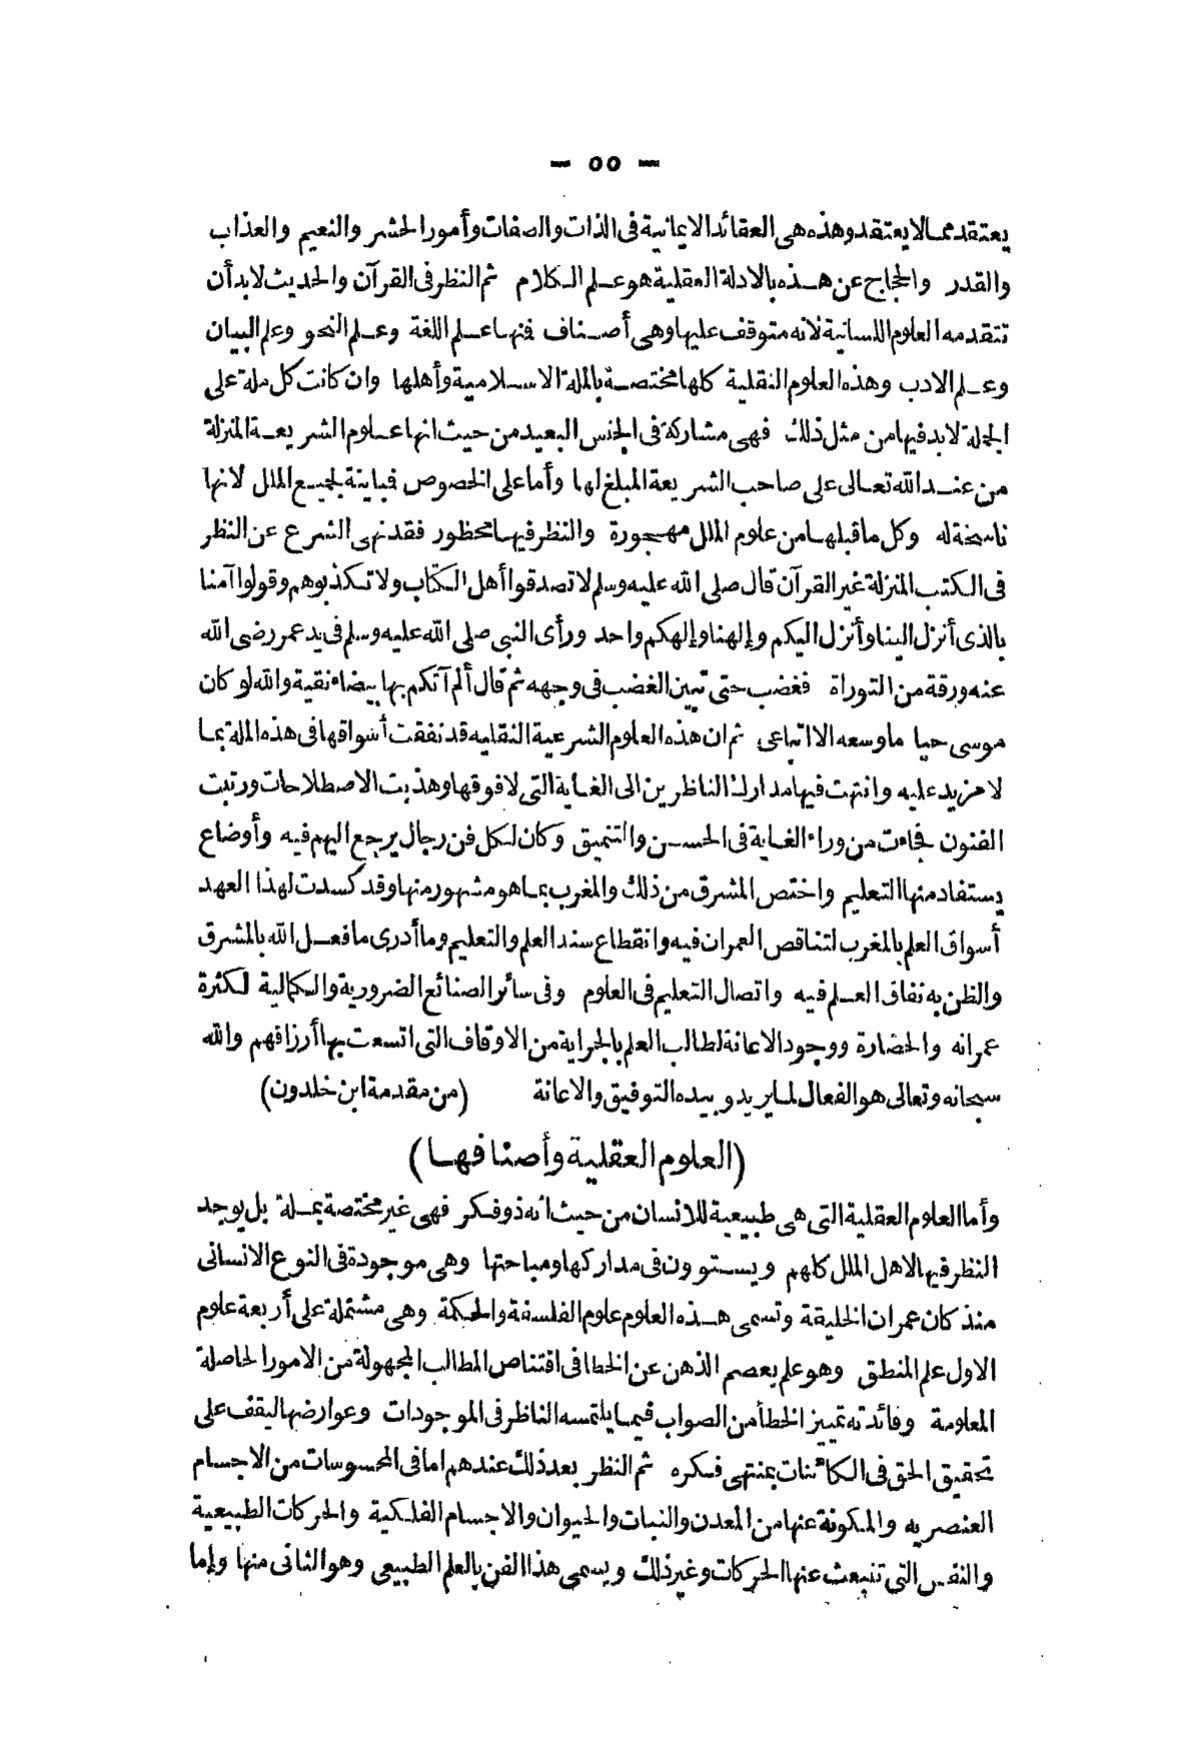 — ٥٥ —
يعتقد مما لا يعتقد وهذه هى العقائد الايمانية فى الذات والصفات وأمور الحشر والنعيم والعذاب
والقدر والحجاج عن هذه بالادلة العقلية هو علم الكلام ثم النظر فى القرآن والحديث لابد أن
تتقدمه العلوم اللسانية لانه متوقف عليها وهى أصناف فنها علم اللغة وعلم النحو وعلم البيان
وعلم الادب وهذه العلوم النقلية كلها مختصة بالملة الاسلامية وأهلها وان كانت كل ملة على
الجملة لابد فيها من مثل ذلك فهى مشاركة فى الجنس البعيد من حيث انها علوم الشريعة المنزلة
من عند الله تعالى على صاحب الشريعة المبلغ لها وأما على الخصوص فباينة لجميع الملل لانها
ناسخة له وكل ما قبلها من علوم الملل مهجورة والنظر فيها محظور فقد نهى الشرع عن النظر
فى الكتب المنزلة غير القرآن قال صلى الله عليه وسلم لا تصدقوا أهل الكتاب ولا تكذبوهم وقولوا آمنا
بالذى أنزل الينا وأنزل اليكم وإلهنا وإلهكم واحد ورأى النبى صلى الله عليه وسلم فى يد عمر رضى الله
عنه ورقة من التوراة فغضب حتى تبين الغضب فى وجهه ثم قال ألم آتكم بها بيضاء نقية والله لو كان
موسى حيا ما وسعه الا اتباعى ثم ان هذه العلوم الشرعية النقليه قد نفقت أسواقها فى هذه الملة بما
لا مزيد عليه وانتهت فيها مدارك الناظرين الى الغاية التى لا فوقها وهذبت الاصطلاحات ورتبت
الفنون فجاءت من وراء الغاية فى الحسن والتنميق وكان لكل فن رجال يرجع اليهم فيه وأوضاع
يستفاد منها التعليم واختص المشرق من ذلك والمغرب بما هو مشهور منها وقد كسدت لهذا العهد
أسواق العلم بالمغرب لتناقص العمران فيه وانقطاع سند العلم والتعليم وما أدرى ما فعل الله بالمشرق
والظن به نفاق العلم فيه واتصال التعليم فى العلوم وفى سائر الصنائع الضرورية والكمالية لكثرة
عمرانه والحضارة ووجود الاعانة لطالب العلم بالجراية من الاوقاف التى اتسعت بها أرزاقهم والله
سبحانه وتعالى هو الفعال لما يريد وبيده التوفيق والاعانة (من مقدمة ابن خلدون)
(العلوم العقلية وأصنافها)
وأما العلوم العقلية التى هى طبيعية للانسان من حيث انه ذو فكر فهى غير مختصة بملة بل يوجد
النظر فيها لاهل الملل كلهم ويستوون فى مداركها ومباحثها وهى موجودة فى النوع الانسانى
منذ كان عمران الخليقة وتسمى هذه العلوم علوم الفلسفة والحكمة وهى مشتملة على أربعة علوم
الاول علم المنطق وهو علم يعصم الذهن عن الخطا فى اقتناص المطالب المجهولة من الامور الحاصلة
المعلومة وفائدته تمييز الخطأ من الصواب فيما يلتمسه الناظر فى الموجودات وعوارضها ليقف على
تحقيق الحق فى الكائنات بمنتهى فكره ثم النظر بعد ذلك عندهم اما فى المحسوسات من الاجسام
العنصريه والمكونة عنها من المعدن والنبات والحيوان والاجسام الفلكية والحركات الطبيعية
والنفس التى تنبعث عنها الحركات وغير ذلك ويسمى هذا الفن بالعلم الطبيعى وهو الثانى منها وإما